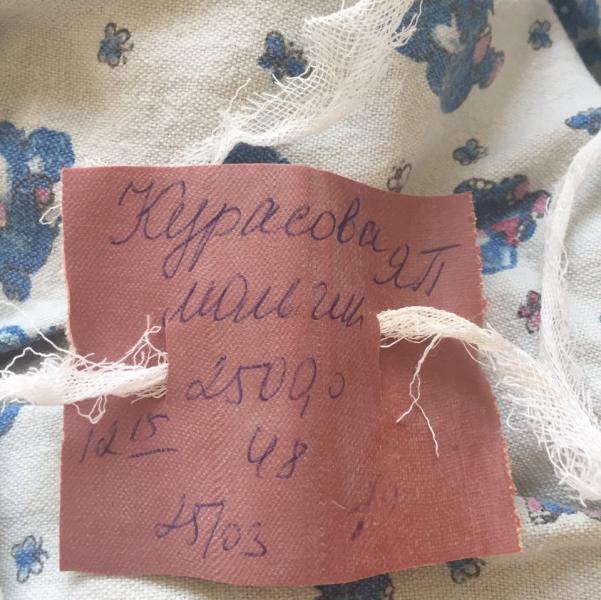 Курасова
ЯП
мальчик
2500,0
12 15 48
25/03